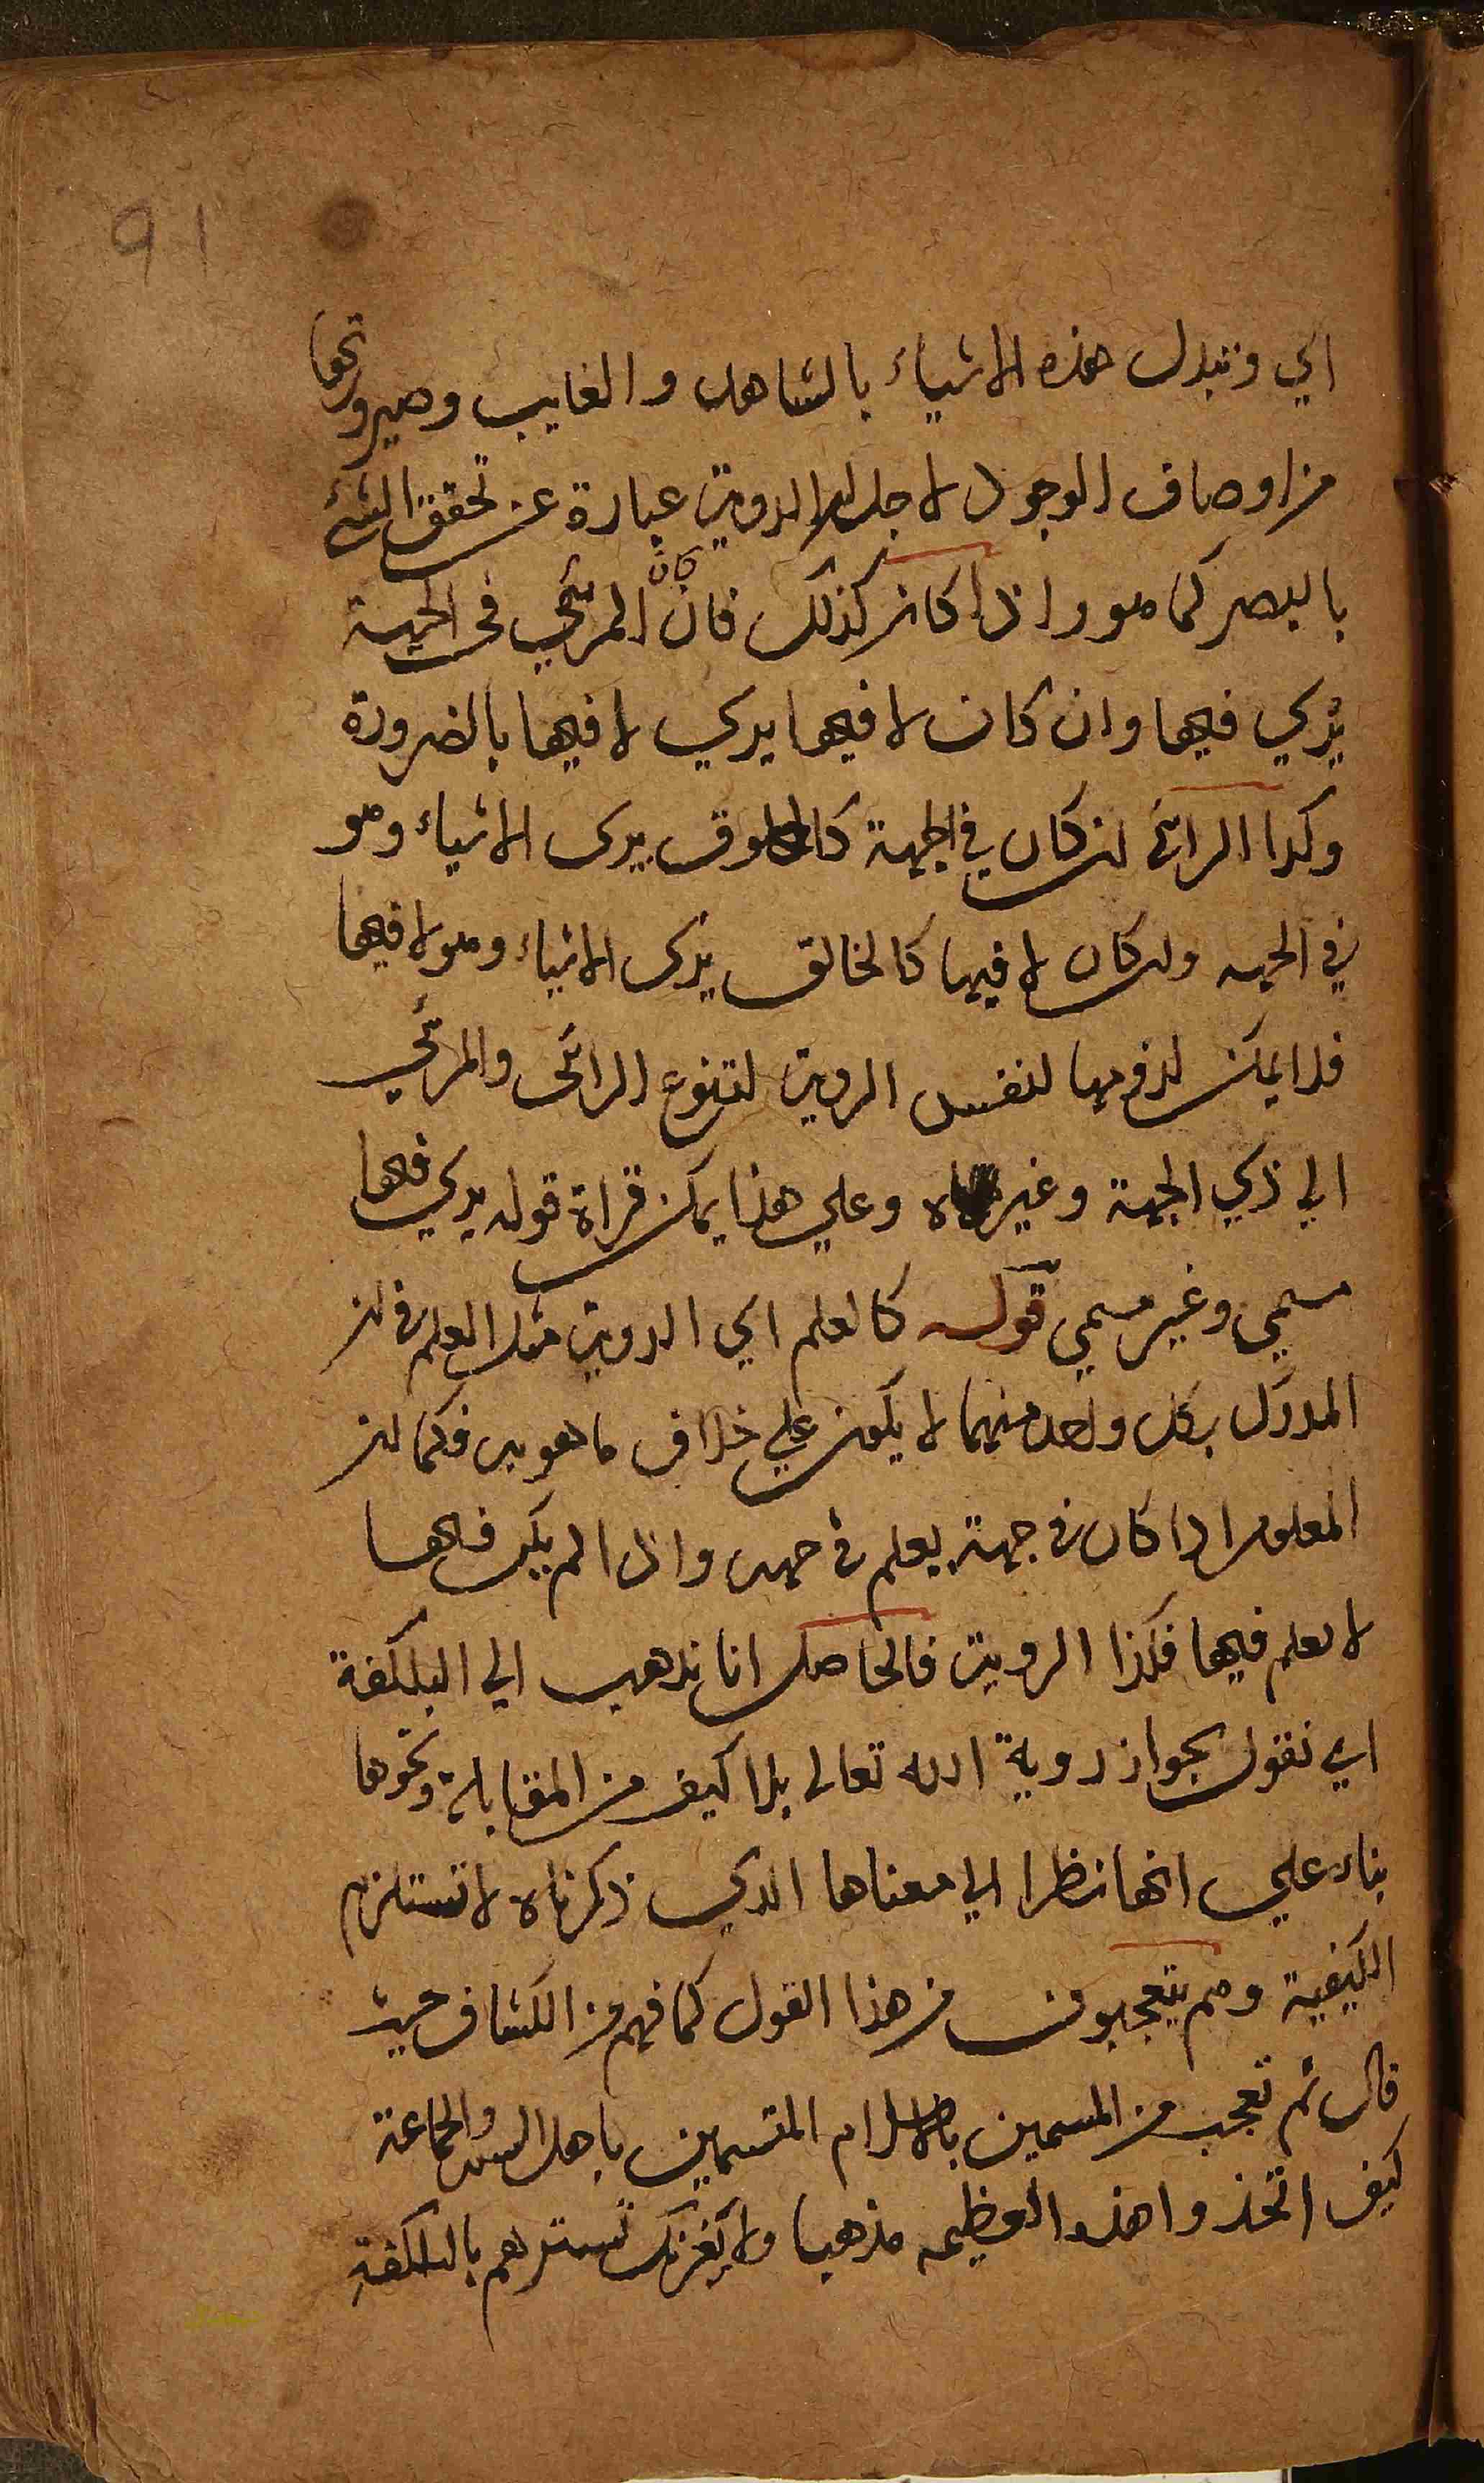 91
اي وتبدل هذه الاشياء بالشاهد والغايب وصيرورتها
من اوصاف الوجود لاجل ان الروية عبارة عن تحقق الشئ
بالبصر كما هو واذا كان كذلك فان كان المرئي في الجهة
يري فيها وان كان لا فيها يري لا فيها بالضرورة
وكذا الرائي ان كان في الجهة كالمخلوق يرى الاشياء وهو
في الجهه وان كان لا فيها كالخالق يرى الاشياء وهو لا فيها
فلا يمكن لزومها لنفس الروية لتنوع الرائى والمرئي
الي ذي الجهة وغيره وعلي هذا يمكن قراة قوله يري فيها
مسمي وغير مسمي قوله كالعلم اي الروية مثل العلم في ان
المدرك بكل واحد منهما لا يكون علي خلاف ما هو به فكما ان
المعلوم اذا كان في جهة يعلم في جهه واذا لم يكن فيها
لا يعلم فيها فكذا الروية فالحاصل انا نذهب الي البلكفة
اي نقول بجواز روية الله تعالى بلا كيف من المقابلة ونحوها
بناء علي انها نظرا الي معناها الذي ذكرناه لا تستلزم
الكيفية وهم يتعجبون من هذا القول كما فهم من الكشاف حيث
قال ثم تعجب من المسمين بالاسلام المتسمين باهل السنه والجماعة
كيف اتخذوا هذه العظيمه مذهبا ولا يغرنك تسترهم بالبلكفة